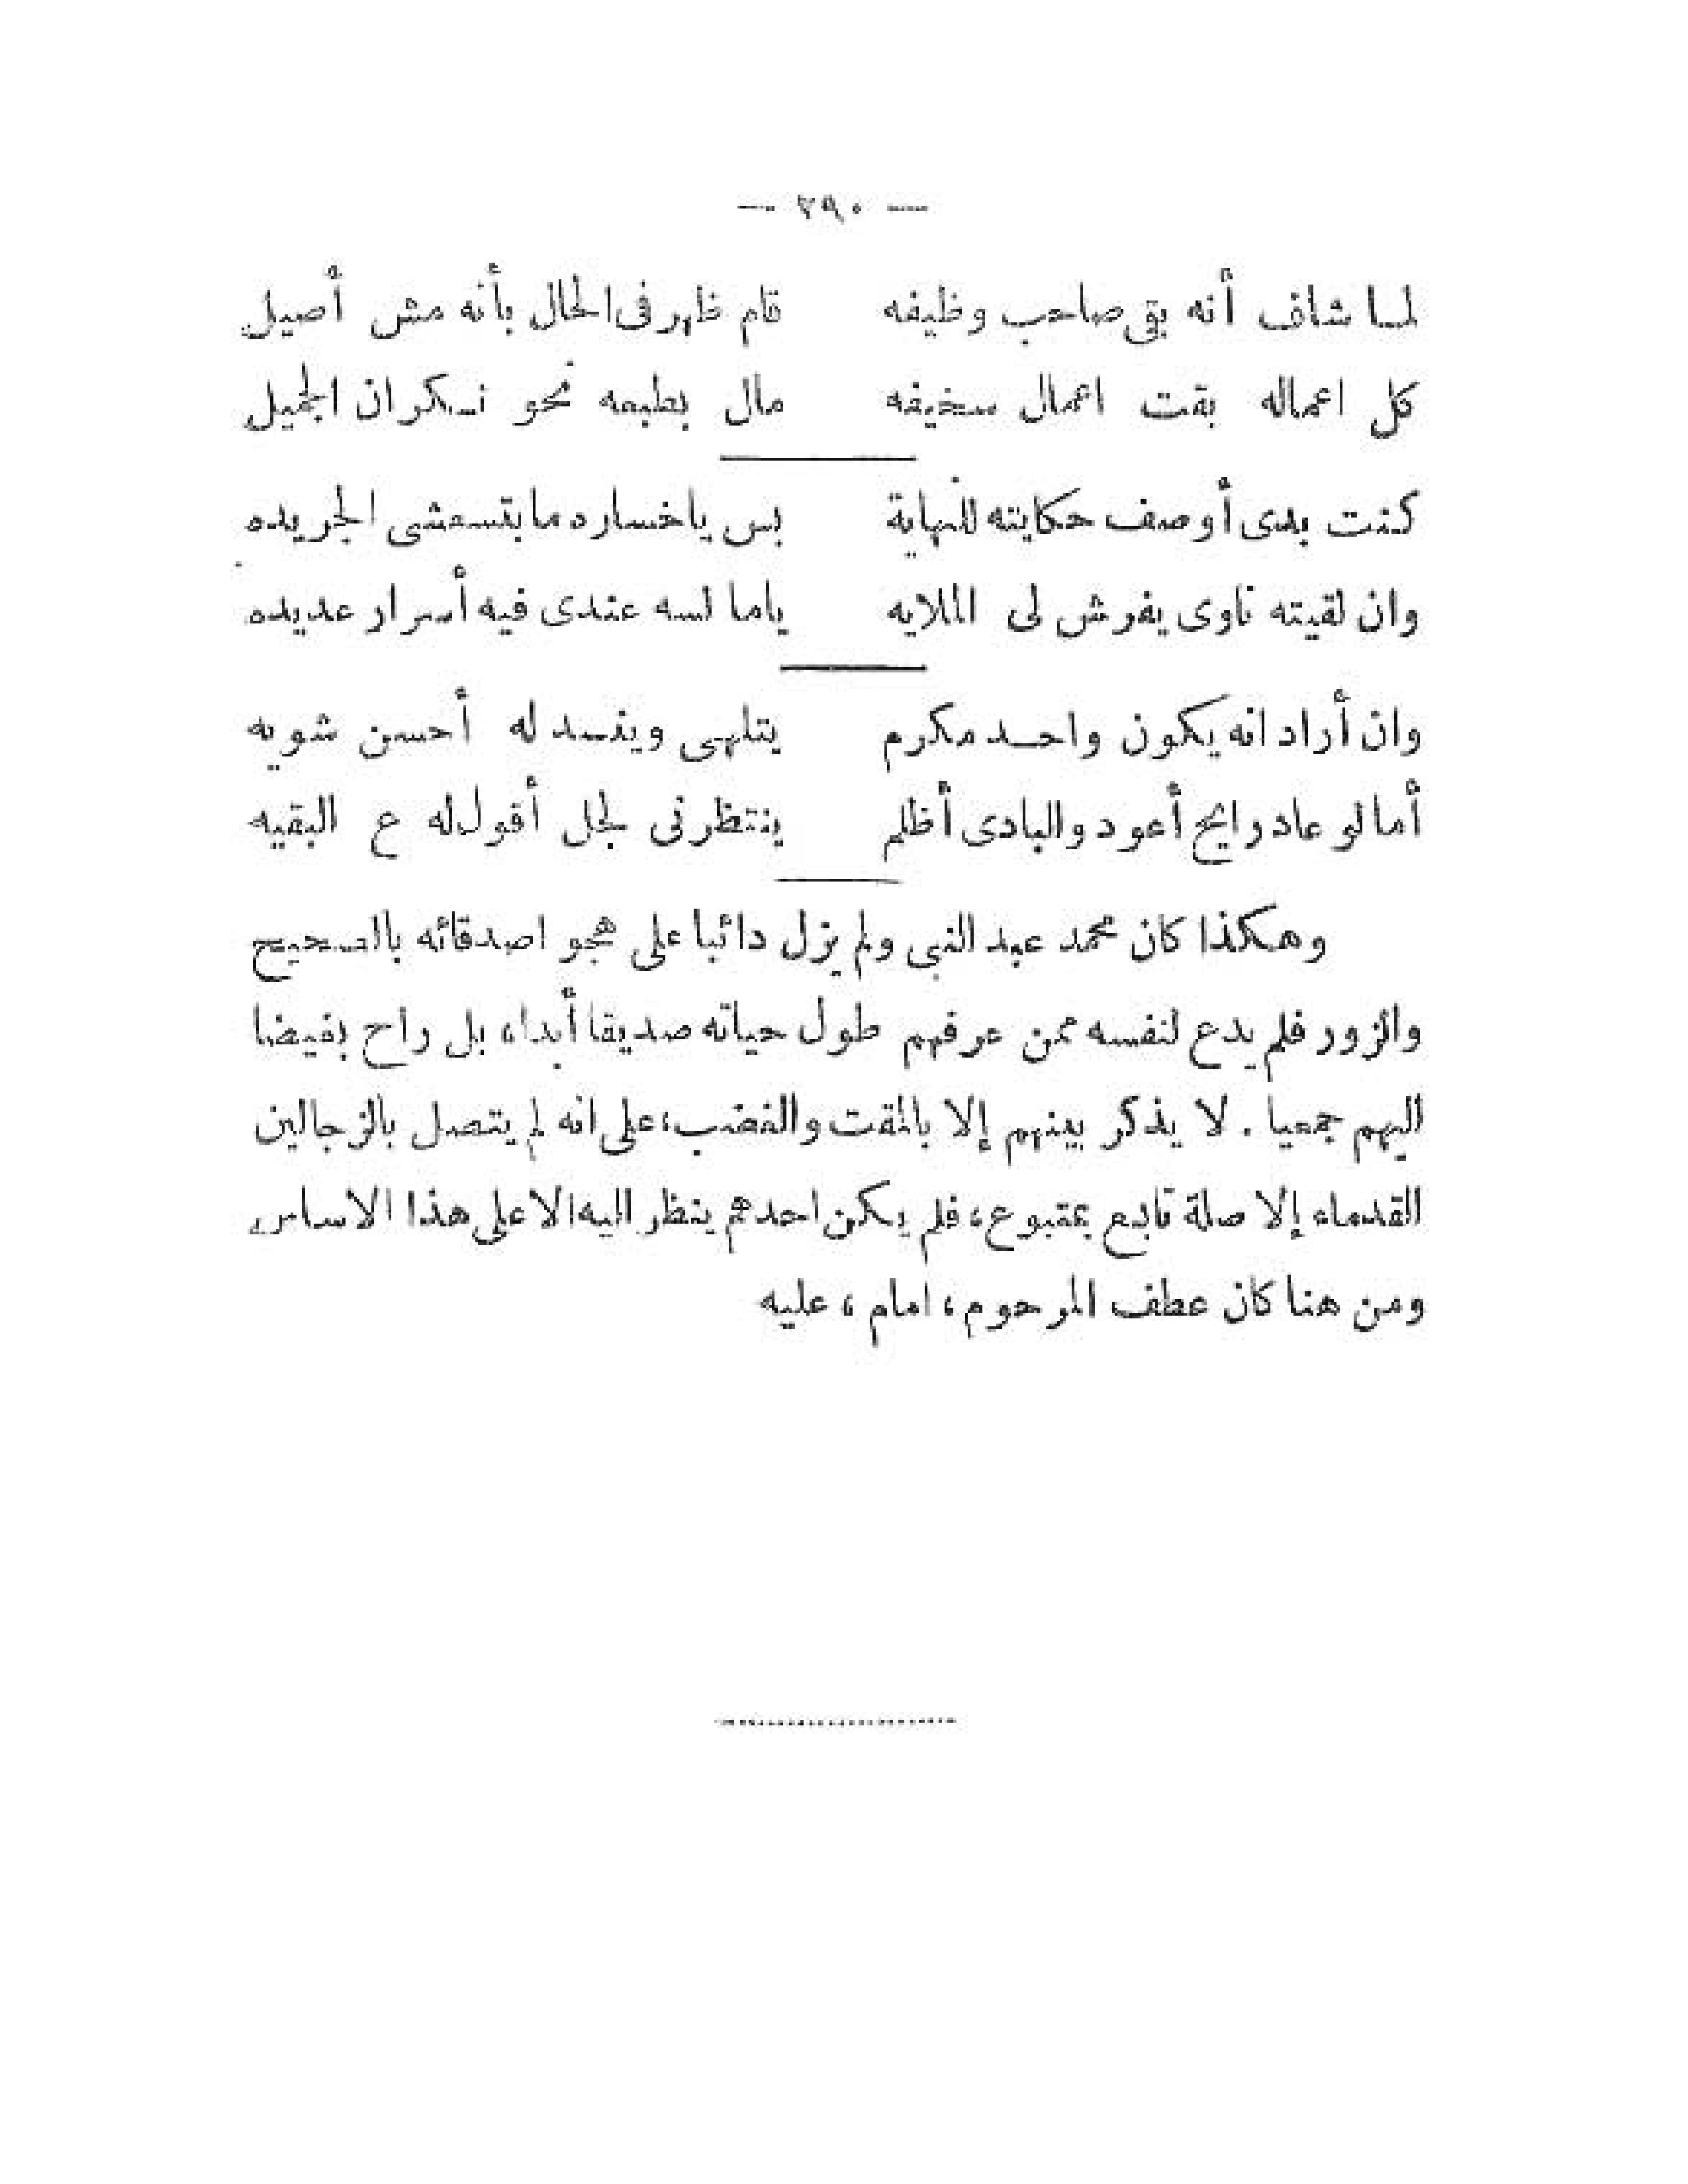 — ٢٩٠ —
لما شاف أنه بقى صاحب وظيفه قام ظهر فى الحال بأنه مش أصيل
كل اعماله بقت اعمال سخيفه مال بطبعه نحو نكران الجميل
كنت بدى أوصف حكايته للنهاية بس ياخساره مابتسعشى الجريده
وان لقيته ناوى يفرش لى الملايه ياما لسه عندى فيه أسرار عديده
وان أراد انه يكون واحد مكرم يتلهى وينسد له أحسن شويه
أما لو عاد رايح أعود والبادى أظلم ينتظرنى لجل أقول له ع البقيه
وهكذا كان محمد عبد النبى ولم يزل دائبا على هجو اصدقائه بالصحيح
والزور فلم يدع لنفسه ممن عرفهم طول حياته صديقا أبدا، بل راح بغيضا
اليهم جمعيا . لا يذكر بينهم إلا بالمقت والغضب، على انه لم يتصل بالزجالين
القدماء إلا صلة تابع بمتبوع، فلم يكن احدهم ينظر اليه الا على هذا الاساس
ومن هنا كان عطف المرحوم ، امام ، عليه